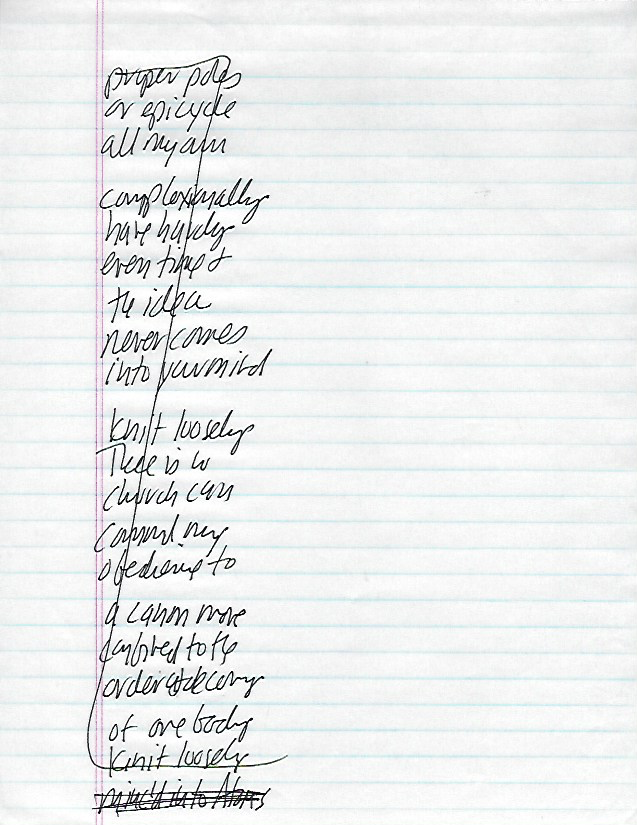 proper poles
or epicycle
all my own
complexionally
have hardly
even time &
the idea
never comes
into your mind
Knit loosely
There is no
church can
command my
obedience to
a canon more
to the
order & decency
of one body
Knit loosely
minc'd into Atoms